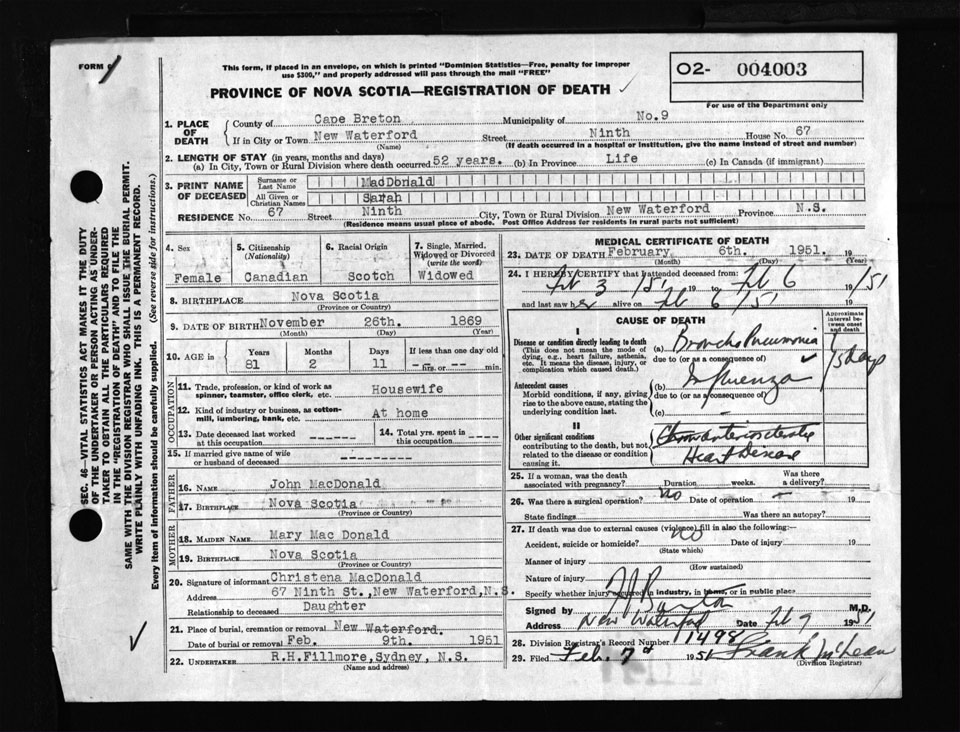 FORM 6
This form, if placed in an envelope, on which is printed "Dominion Statistics—Free, penalty for improper
use $300," and properly addressed will pass through the mail "FREE"
PROVINCE OF NOVA SCOTIA—REGISTRATION OF DEATH
O2- 004003
For use of the Department only
SEC. 46—VITAL STATISTICS ACT MAKES IT THE DUTY
OF THE UNDERTAKER OR PERSON ACTING AS UNDER-
TAKER TO OBTAIN ALL THE PARTICULARS REQUIRED
IN THE "REGISTRATION OF DEATH" AND TO FILE THE
SAME WITH THE DIVISION REGISTRAR WHO SHALL ISSUE THE BURIAL PERMIT.
WRITE PLAINLY WITH UNFADING INK. THIS IS A PERMANENT RECORD.
Every item of information should be carefully supplied. (See reverse side for instructions.)
1. PLACE OF DEATH
County of Cape Breton Municipality of No.9
If in City or Town New Waterford Street Ninth House No. 67
(Name) (If death occurred in a hospital or institution, give the name instead of street and number)
2. LENGTH OF STAY (in years, months and days)
(a) In City, Town or Rural Division where death occurred 52 years. (b) In Province Life (c) In Canada (if immigrant)
3. PRINT NAME OF DECEASED
Surname or Last Name MacDonald
All Given or Christian Names Sarah
RESIDENCE No. 67 Street Ninth City, Town or Rural Division New Waterford Province N.S.
(Residence means usual place of abode. Post Office Address for residents in rural parts not sufficient)
4. Sex Female
5. Citizenship (Nationality) Canadian
6. Racial Origin Scotch
7. Single, Married, Widowed or Divorced (write the word) Widowed
8. BIRTHPLACE Nova Scotia
(Province or Country)
9. DATE OF BIRTH November 26th. 1869
(Month) (Day) (Year)
10. AGE in Years Months Days If less than one day old
81 2 11 hrs. or min.
OCCUPATION
11. Trade, profession, or kind of work as spinner, teamster, office clerk, etc. Housewife
12. Kind of industry or business, as cotton-mill, lumbering, bank, etc. At home
13. Date deceased last worked at this occupation
14. Total yrs. spent in this occupation
15. If married give name of wife or husband of deceased
FATHER
16. NAME John MacDonald
17. BIRTHPLACE Nova Scotia
(Province or Country)
MOTHER
18. MAIDEN NAME Mary Mac Donald
19. BIRTHPLACE Nova Scotia
(Province or Country)
20. Signature of informant Christena MacDonald
Address 67 Ninth St., New Waterford,N.S.
Relationship to deceased Daughter
21. Place of burial, cremation or removal New Waterford.
Date of burial or removal Feb. 9th. 1951
22. UNDERTAKER R.H.Fillmore,Sydney, N.S.
MEDICAL CERTIFICATE OF DEATH
23. DATE OF DEATH February 6th. 1951. 19
(Month) (Day) (Year)
24. I HEREBY CERTIFY that I attended deceased from:
Feb 3 /51 19 to Feb 6 19/51
and last saw her alive on Feb 6/51 19
CAUSE OF DEATH
Approximate interval between onset and death
I
Disease or condition directly leading to death
(This does not mean the mode of dying, e.g., heart failure, asthenia, etc. It means the disease, injury, or complication which caused death.)
(a) Broncho Pneumonia
due to (or as a consequence of)
5 days
Antecedent causes
Morbid conditions, if any, giving rise to the above cause, stating the underlying condition last.
(b) Influenza
due to (or as a consequence of)
(c) -
II
Other significant conditions contributing to the death, but not related to the disease or condition causing it.
Heart Disease
25. If a woman, was the death associated with pregnancy? Duration weeks. Was there a delivery?
26. Was there a surgical operation? No Date of operation - 19
State findings Was there an autopsy?
27. If death was due to external causes (violence) fill in also the following:—
Accident, suicide or homicide? No Date of injury 19
(State which)
Manner of injury
(How sustained)
Nature of injury
Specify whether injury occurred in industry, in home, or in public place
Signed by M.D.
Address New Waterford Date Feb 9 1951
28. Division Registrar's Record Number 1498
29. Filed Feb. 7th 1951 Frank McLean
(Division Registrar)